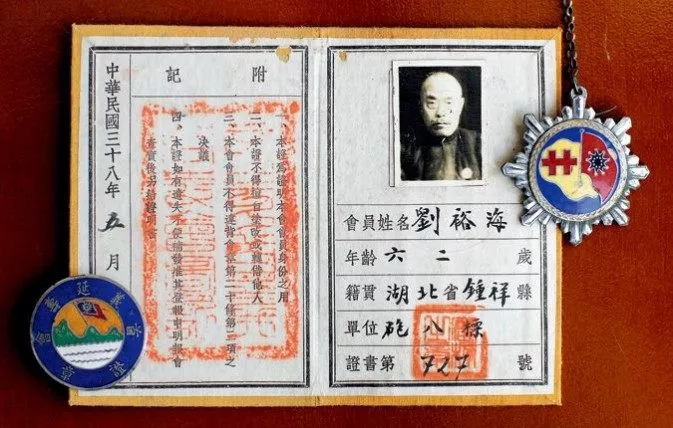 會員姓名 劉裕海
年齡 六二 歲
籍貫 湖北省鍾祥縣
單位 砲八
證書第 727 號
附記
一、本證為證明本會會員身份之用
二、本證不得擅自塗改或轉借他人
三、本會會員不得違背會章第二十條第二項之
決議
四、本證如有遺失
中華民國三十八年五月